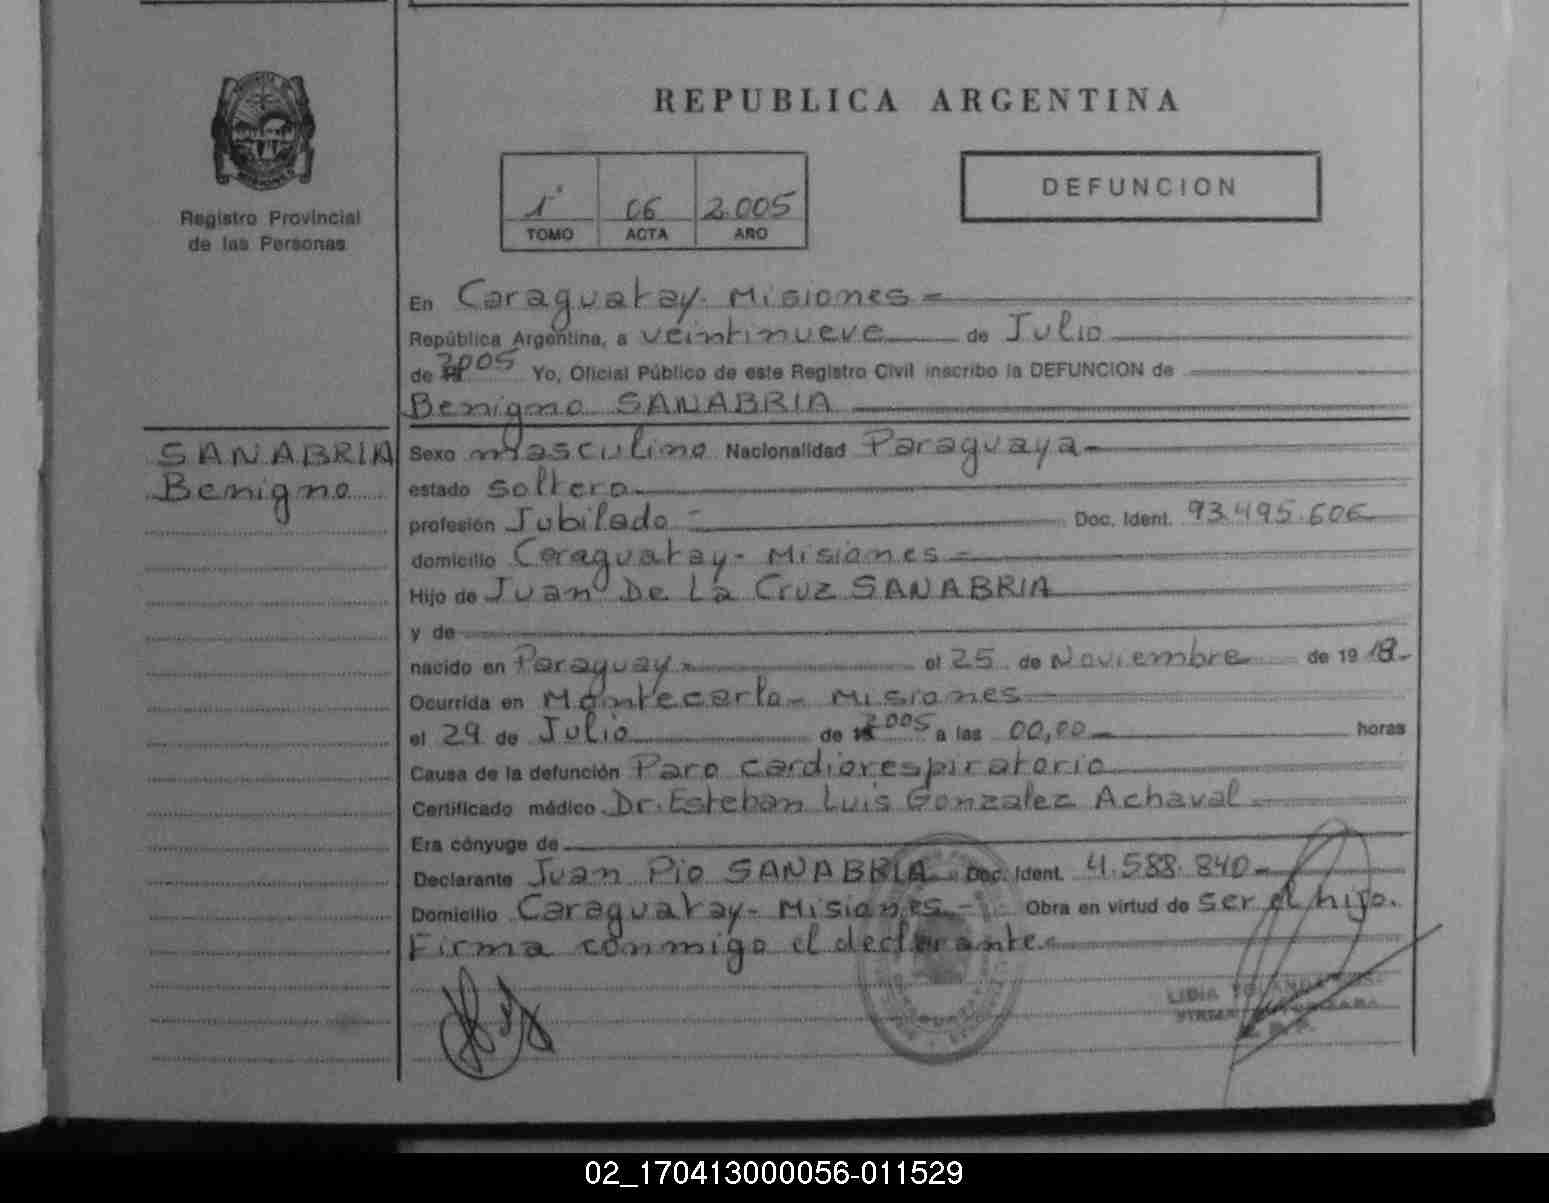 REPUBLICA ARGENTINA
Registro Provincial
de las Personas
1° 06 2.005
TOMO ACTA AÑO
DEFUNCION
En Caraguatay - Misiones =
República Argentina, a veintinueve de Julio
de 2005 Yo, Oficial Público de este Registro Civil inscribo la DEFUNCION de
Benigno SANABRIA
SANABRIA
Benigno
Sexo masculino Nacionalidad Paraguaya
estado soltero
profesión Jubilado - Doc. Ident. 93.495.606
domicilio Caraguatay - Misiones =
Hijo de Juan De La Cruz SANABRIA
y de
nacido en Paraguay el 25 de Noviembre de 1918.
Ocurrida en Montecarlo - Misiones
el 29 de Julio de 2005 a las 00,00 horas
Causa de la defunción Paro cardiorespiratorio
Certificado médico Dr. Esteban Luis Gonzalez Achaval
Era cónyuge de
Declarante Juan Pio SANABRIA Doc. Ident. 4.588.840
Domicilio Caraguatay - Misiones - Obra en virtud de ser el hijo.
Firma conmigo el declarante
LIDIA
02_170413000056-011529